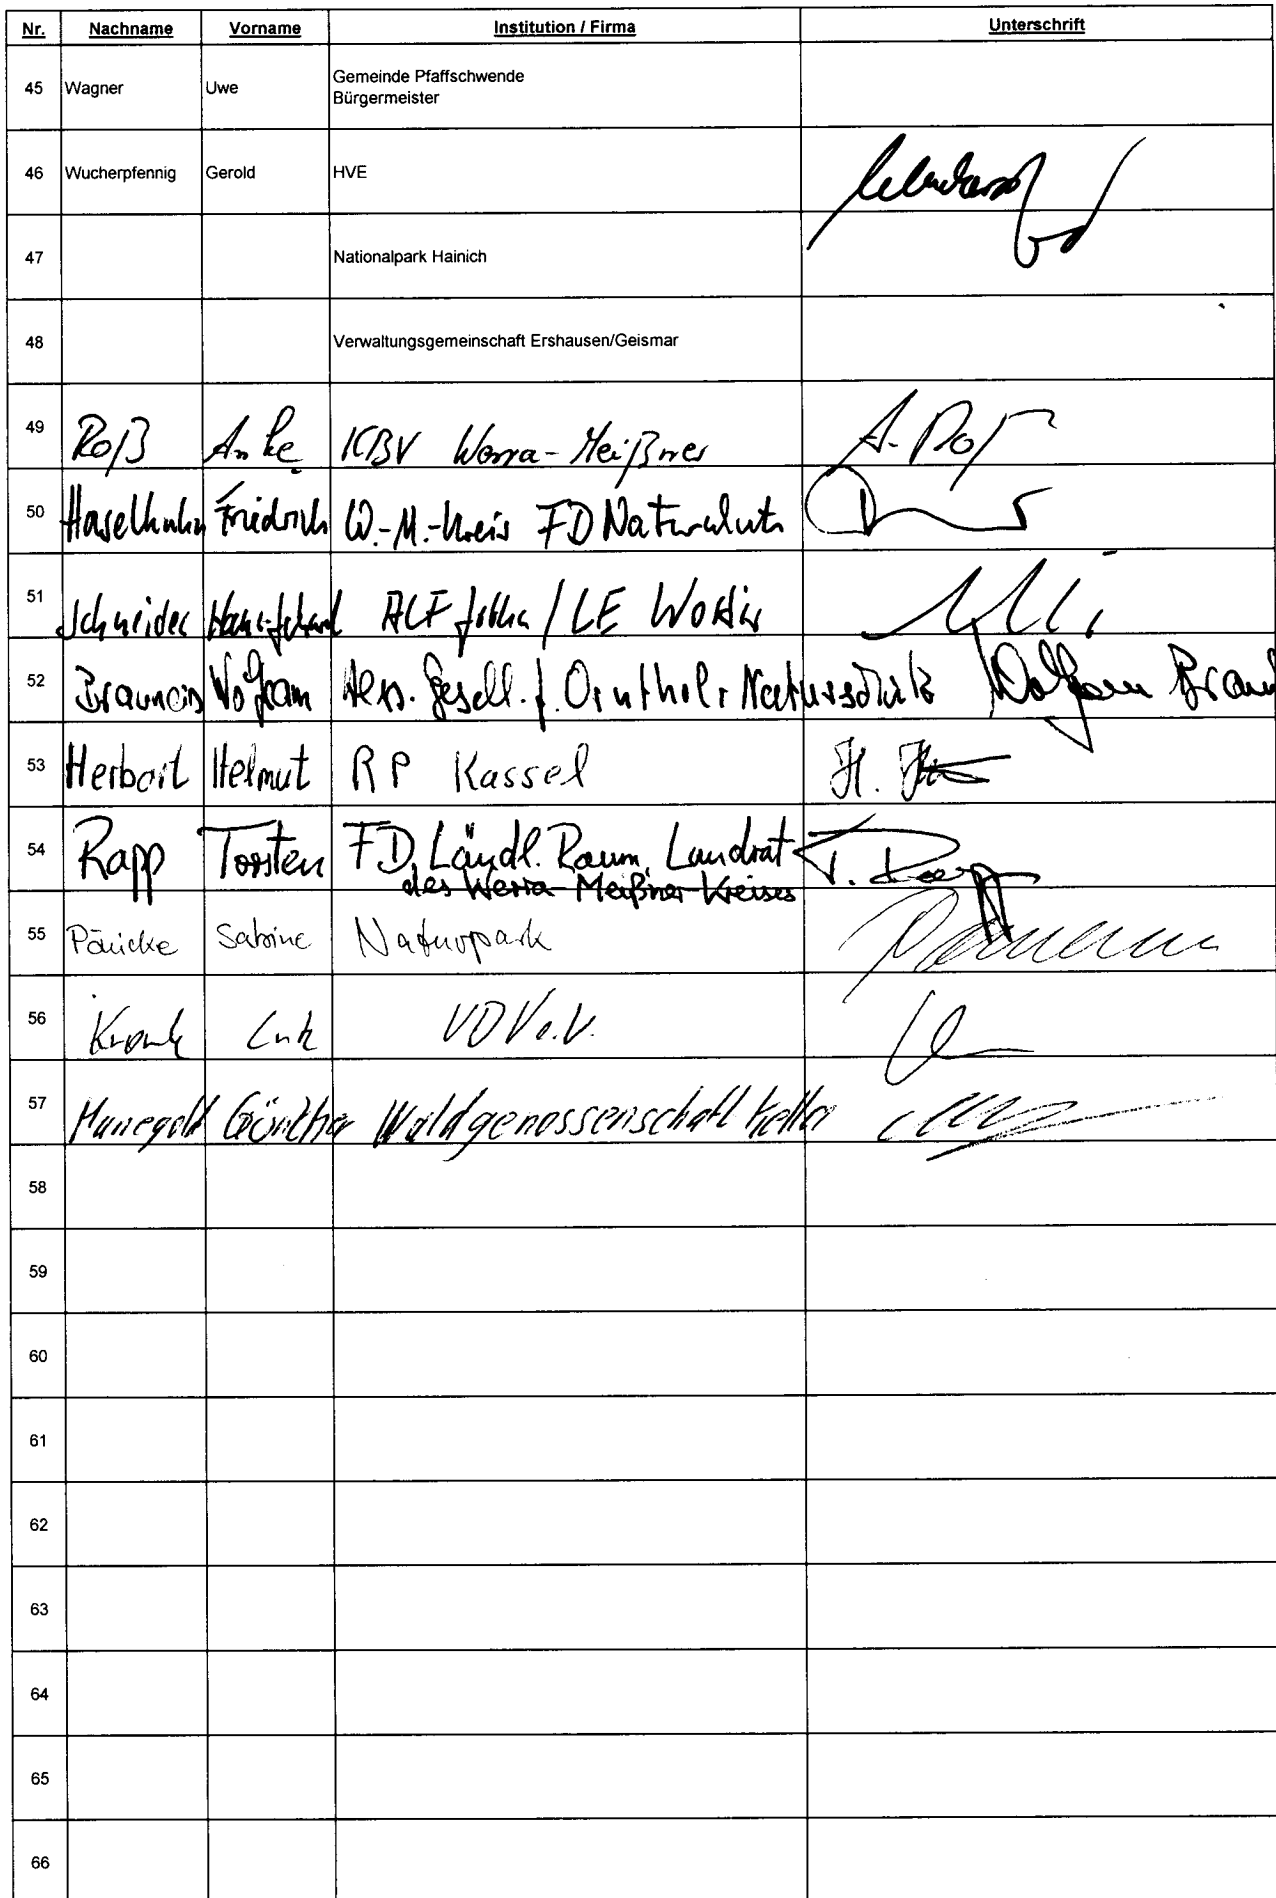 Nr. Nachname Vorname Institution / Firma Unterschrift
45 Wagner Uwe Gemeinde Pfaffschwende
Bürgermeister
46 Wucherpfennig Gerold HVE
47 Nationalpark Hainich
48 Verwaltungsgemeinschaft Ershausen/Geismar
49 Roß Anke KBV Werra-Meißner A. Roß
50 Haselhuhn Friedrich W.-M.-Kreis FD Naturschutz
51 Schneider ALF Gotha / LE
52 Brauneis Wolfram Hess. Gesell. f. Ornithol. Naturschutz Wolfram Braun
53 Herbort Helmut RP Kassel H.
54 Rapp Torsten FD Ländl. Raum, Landrat T. Rapp
des Werra-Meißner-Kreises
55 Pönicke Sabine Naturpark
56 Lutz VDV e.V.
57 Manegold Günther Waldgenossenschaft Kella
58
59
60
61
62
63
64
65
66